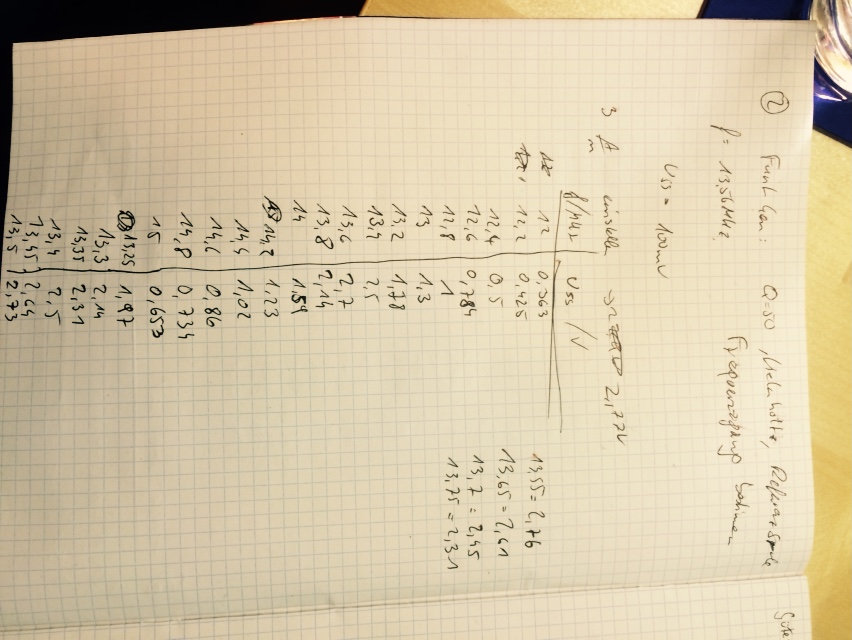 ② Funktion: Q=50, Helmholtz, Referenzspule
f = 13,56 MHz Frequenzgang bestimmen
Uss = 100mV
3 A/m einstellen 2,77V
f/MHz Uss / V
12 0,363
12,2 0,425
12,4 0,5
12,6 0,784
12,8 1
13 1,3
13,2 1,78
13,4 2,5
13,6 2,7
13,8 2,14
14 1,59
14,2 1,23
14,4 1,02
14,6 0,86
14,8 0,734
15 0,653
13,25 1,97
13,3 2,14
13,35 2,31
13,4 2,5
13,45 2,64
13,5 2,73
13,55 = 2,76
13,65 = 2,61
13,7 = 2,45
13,75 = 2,31
Güte